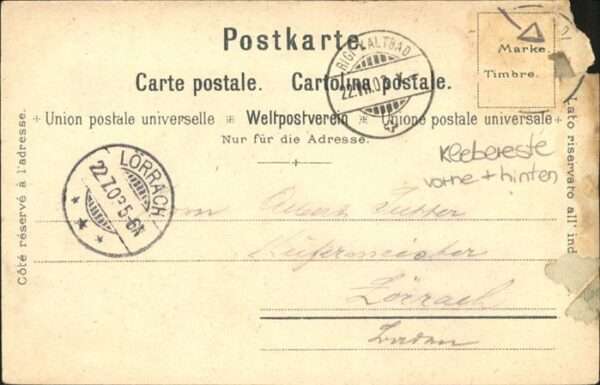 Postkarte.
Marke.
Timbre.
RIGI-KALTBAD
22.VII.03
Carte postale. Cartolina postale.
Union postale universelle Weltpostverein Unione postale universale
Nur für die Adresse.
Klebereste
vorne + hinten
LÖRRACH
22.7.03 5-6N
Côté réservé à l'adresse.
Lato riservato all' ind
Lörrach
Baden